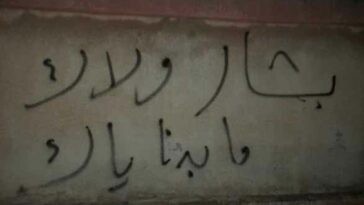 بشار ولاك
ما بدنا ياك